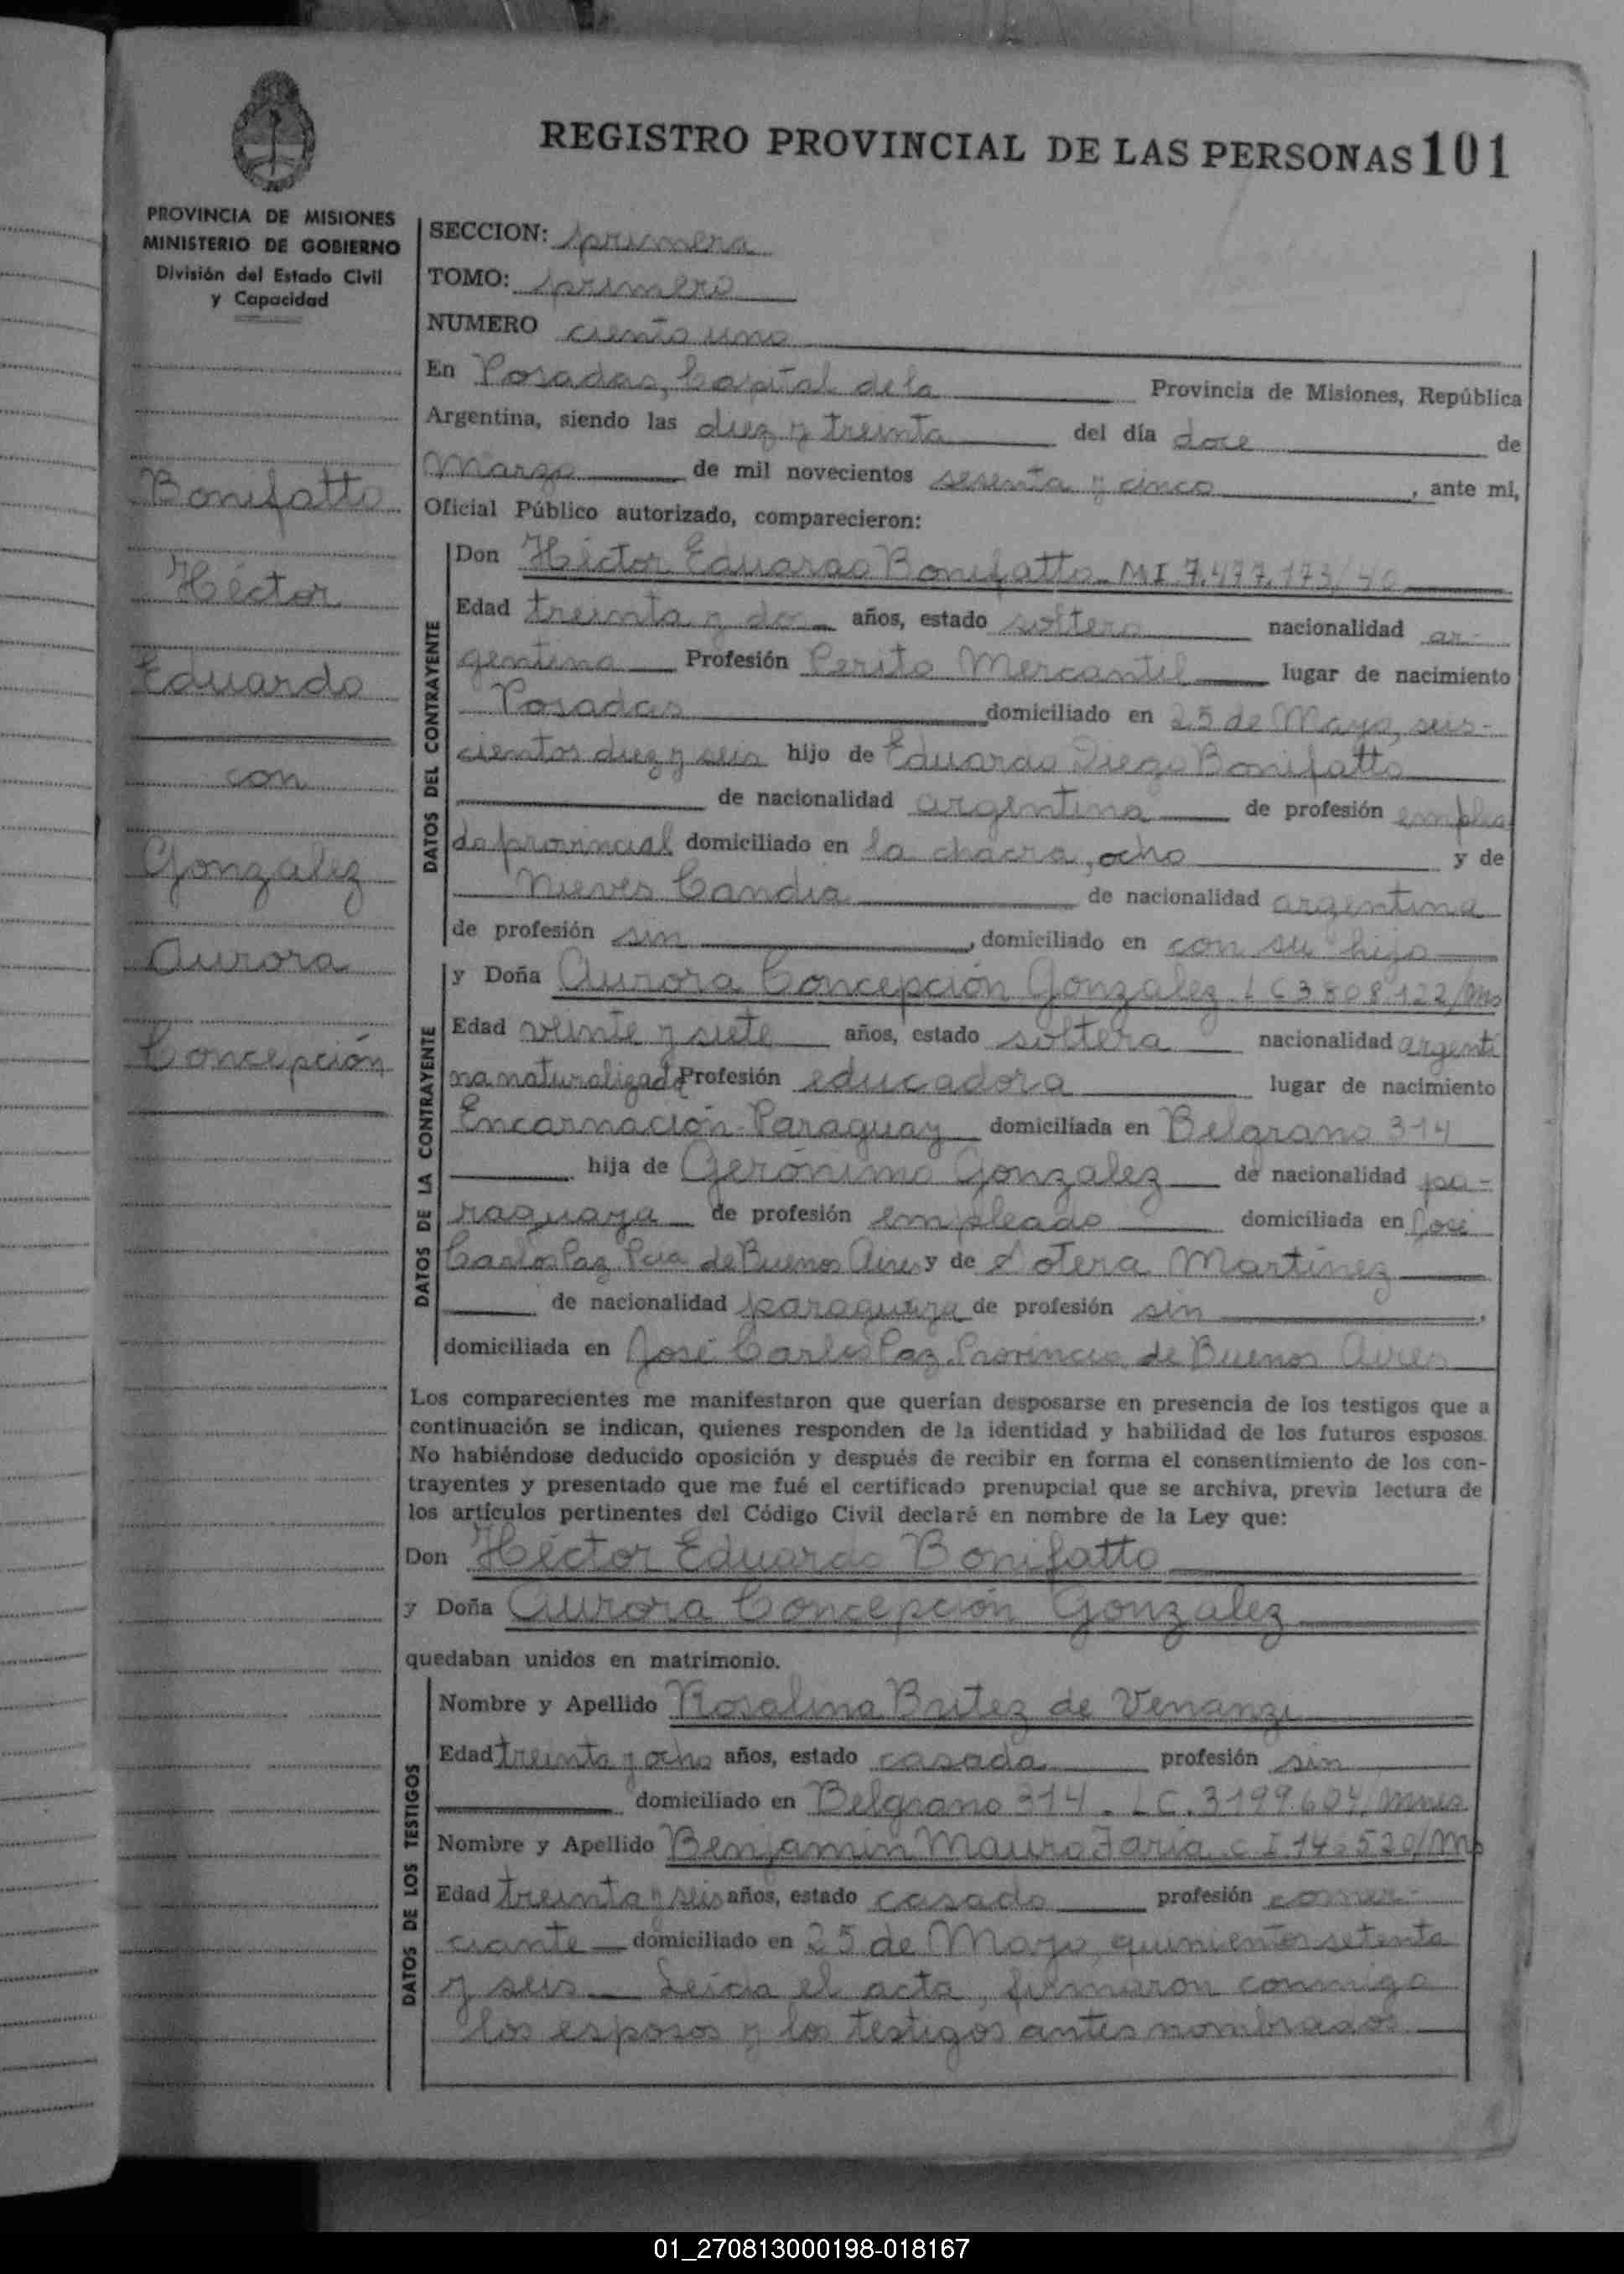 REGISTRO PROVINCIAL DE LAS PERSONAS 101
PROVINCIA DE MISIONES
MINISTERIO DE GOBIERNO
División del Estado Civil
y Capacidad
Bonifatto
Héctor
Eduardo
con
Gonzalez
Aurora
Concepción
SECCION: primera
TOMO: primero
NUMERO ciento uno
En Posadas, Capital de la Provincia de Misiones, República
Argentina, siendo las diez y treinta del día doce de
Marzo de mil novecientos sesenta y cinco, ante mi,
Oficial Público autorizado, comparecieron:
DATOS DEL CONTRAYENTE
Don Héctor Eduardo Bonifatto MI 7.477.173/40
Edad treinta y dos años, estado soltero nacionalidad ar-
gentina Profesión Perito Mercantil lugar de nacimiento
Posadas domiciliado en 25 de Mayo, seis-
cientos diez y seis hijo de Eduardo Diego Bonifatto
de nacionalidad argentina de profesión emplea
do provincial domiciliado en la chacra, ocho y de
Nieves Candia de nacionalidad argentina
de profesión sin, domiciliado en con su hijo
DATOS DE LA CONTRAYENTE
y Doña Aurora Concepción Gonzalez LC 3.808.122/Mns
Edad veinte y siete años, estado soltera nacionalidad argenti
na naturalizada Profesión educadora lugar de nacimiento
Encarnación-Paraguay domiciliada en Belgrano 314
hija de Gerónimo Gonzalez de nacionalidad pa-
raguaya de profesión empleado domiciliada en José
Carlos Paz Pcia de Buenos Aires y de Sotera Martinez
de nacionalidad paraguaya de profesión sin,
domiciliada en José Carlos Paz, Provincia de Buenos Aires
Los comparecientes me manifestaron que querían desposarse en presencia de los testigos que a
continuación se indican, quienes responden de la identidad y habilidad de los futuros esposos.
No habiéndose deducido oposición y después de recibir en forma el consentimiento de los con-
trayentes y presentado que me fué el certificado prenupcial que se archiva, previa lectura de
los artículos pertinentes del Código Civil declaré en nombre de la Ley que:
Don Héctor Eduardo Bonifatto
y Doña Aurora Concepción Gonzalez
quedaban unidos en matrimonio.
DATOS DE LOS TESTIGOS
Nombre y Apellido Rosalina Britez de Venanzi
Edad treinta y ocho años, estado casada profesión sin
domiciliado en Belgrano 314. LC. 3199.604/Mnes
Nombre y Apellido Benjamin Mauro Faria C I 146520/Ms
Edad treinta y seis años, estado casado profesión comer-
ciante domiciliado en 25 de Mayo, quinientos setenta
y seis Leída el acta, firmaron conmigo
los esposos y los testigos antes nombrados
01_270813000198-018167